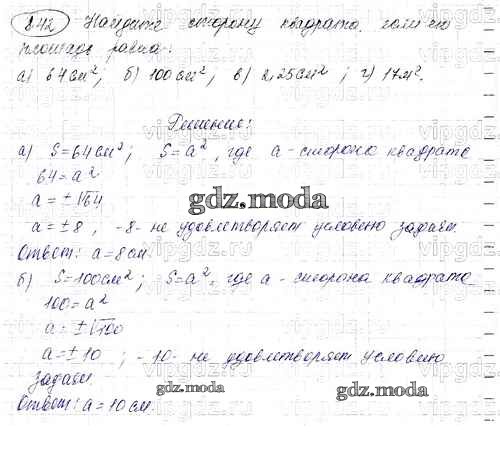 842 Найдите сторону квадрата, если его
площадь равна:
а) 64см²; б) 100см²; в) 2,25см²; г) 17м².
Решение:
а) S=64см²; S=a², где a - сторона квадрата
64=a²
a=±√64
a=±8, -8- не удовлетворяет условию задачи.
Ответ: a=8см.
б) S=100см²; S=a², где a - сторона квадрата
100=a²
a=±√100
a=±10; -10- не удовлетворяет условию
задачи.
Ответ: a=10см.
gdz.moda
gdz.moda
gdz.moda